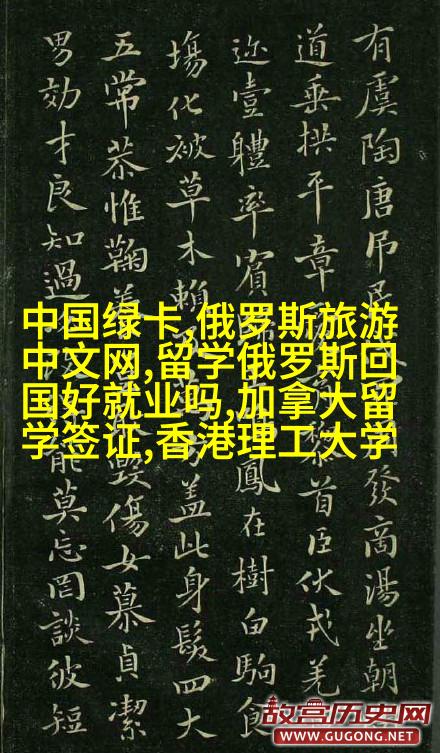 有虞陶唐吊民發商湯坐朝
道垂拱平章黎首臣伏戎羌
迩壹體率賓歸鳳在樹白駒食
塲化被草木賴盖此身髮四大
五常恭惟鞠養毀傷女慕貞潔
男効才良知過能莫忘罔談彼短
中国绿卡,俄罗斯旅游
中文网,留学俄罗斯回
国好就业吗,加拿大留
学签证,香港理工大学
故宫历史网
WWW.GUGONG.NET